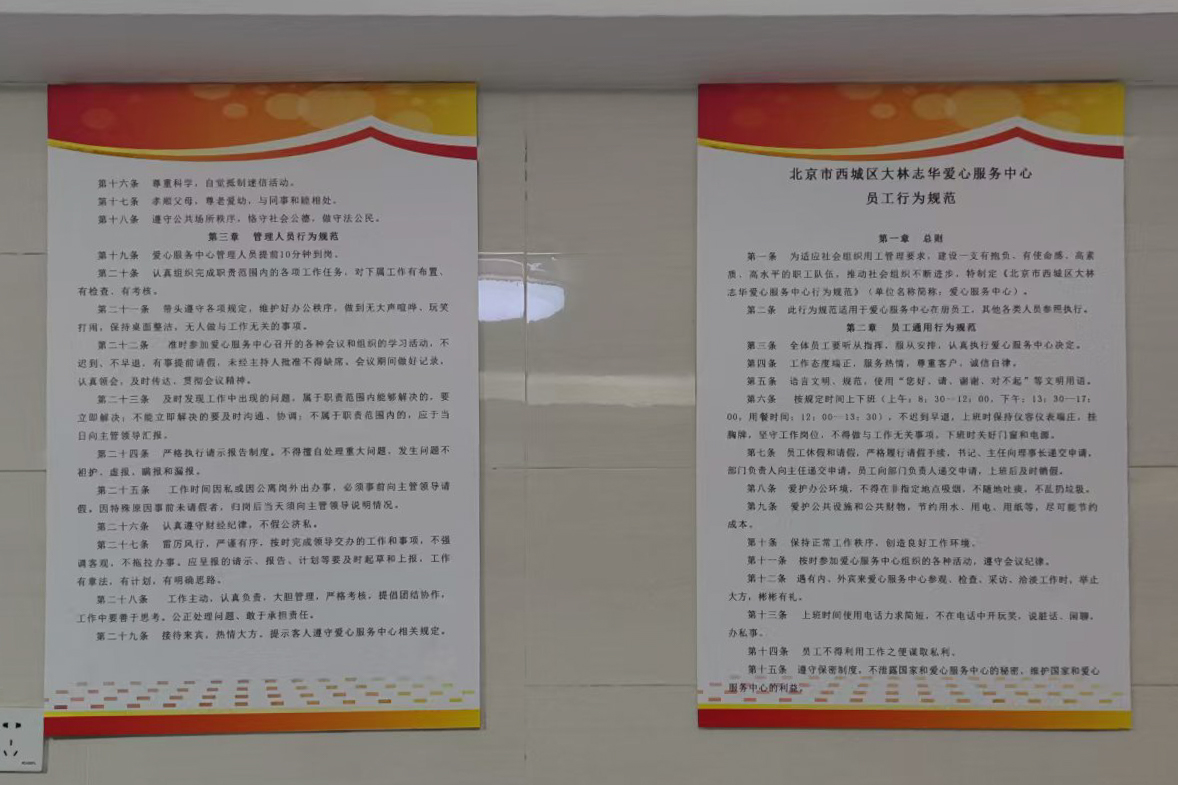 北京市西城区大林志华爱心服务中心
员工行为规范
第一章 总则
第一条 为适应社会组织用工管理要求，建设一支有抱负、有使命感、高素
质、高水平的职工队伍，推动社会组织不断进步，特制定《北京市西城区大林
志华爱心服务中心行为规范》（单位名称简称：爱心服务中心）。
第二条 此行为规范适用于爱心服务中心在册员工，其他各类人员参照执行。
第二章 员工通用行为规范
第三条 全体员工要听从指挥、服从安排，认真执行爱心服务中心决定。
第四条 工作态度端正，服务热情，尊重客户，诚信自律。
第五条 语言文明、规范，使用“您好、请、谢谢、对不起”等文明用语。
第六条 按规定时间上下班（上午：8：30—12：00，下午：13：30—17：
00，用餐时间：12：00—13：30），不迟到早退，上班时保持仪容仪表端庄，挂
胸牌，坚守工作岗位，不得做与工作无关事项，下班时关好门窗和电源。
第七条 员工休假和请假，严格履行请假手续，书记、主任向理事长递交申请，
部门负责人向主任递交申请，员工向部门负责人递交申请，上班后及时销假。
第八条 爱护办公环境，不得在非指定地点吸烟，不随地吐痰，不乱扔垃圾。
第九条 爱护公共设施和公共财物，节约用水、用电、用纸等，尽可能节约
成本。
第十条 保持正常工作秩序，创造良好工作环境。
第十一条 按时参加爱心服务中心组织的各种活动，遵守会议纪律。
第十二条 遇有内、外宾来爱心服务中心参观、检查、采访、洽谈工作时，举止
大方，彬彬有礼。
第十三条 上班时间使用电话力求简短，不在电话中开玩笑，说脏话、闲聊，
办私事。
第十四条 员工不得利用工作之便谋取私利。
第十五条 遵守保密制度，不泄露国家和爱心服务中心的秘密，维护国家和爱心
服务中心的利益。
第十六条 尊重科学，自觉抵制迷信活动。
第十七条 孝顺父母，尊老爱幼，与同事和睦相处。
第十八条 遵守公共场所秩序，恪守社会公德，做守法公民。
第三章 管理人员行为规范
第十九条 爱心服务中心管理人员提前10分钟到岗。
第二十条 认真组织完成职责范围内的各项工作任务，对下属工作有布置、
有检查、有考核。
第二十一条 带头遵守各项规定，维护好办公秩序，做到无大声喧哗、玩笑
打闹，保持桌面整洁，无人做与工作无关的事项。
第二十二条 准时参加爱心服务中心召开的各种会议和组织的学习活动，不
迟到、不早退，有事提前请假，未经主持人批准不得缺席。会议期间做好记录，
认真领会，及时传达、贯彻会议精神。
第二十三条 及时发现工作中出现的问题，属于职责范围内能够解决的，要
立即解决；不能立即解决的要及时沟通、协调；不属于职责范围内的，应于当
日向主管领导汇报。
第二十四条 严格执行请示报告制度。不得擅自处理重大问题，发生问题不
袒护、虚报、瞒报和漏报。
第二十五条 工作时间因私或因公离岗外出办事，必须事前向主管领导请
假。因特殊原因事前未请假者，归岗后当天须向主管领导说明情况。
第二十六条 认真遵守财经纪律，不假公济私。
第二十七条 雷厉风行，严谨有序，按时完成领导交办的工作和事项，不强
调客观，不拖拉办事。应呈报的请示、报告、计划等要及时起草和上报，工作
有章法，有计划，有明确思路。
第二十八条 工作主动，认真负责，大胆管理，严格考核，提倡团结协作，
工作中要善于思考。公正处理问题、敢于承担责任。
第二十九条 接待来宾，热情大方，提示客人遵守爱心服务中心相关规定。